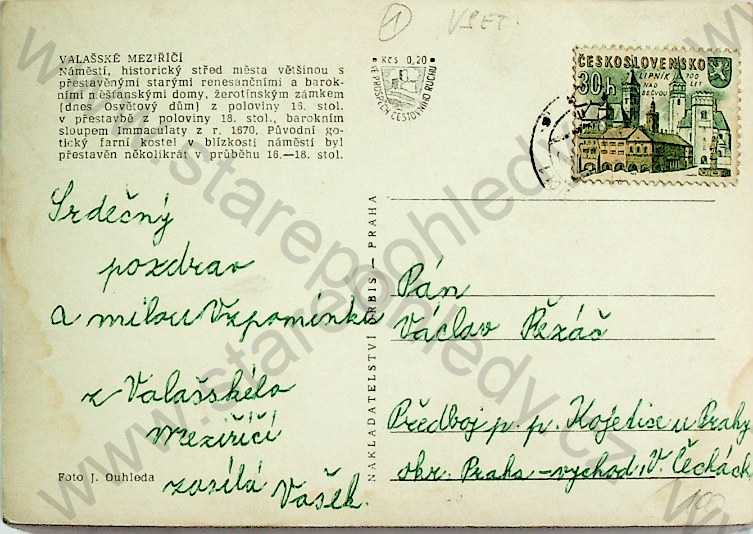 1
VSET.
VALAŠSKÉ MEZIŘÍČÍ
Náměstí, historický střed města většinou s
přestavěnými starými renesančními a barok-
ními měšťanskými domy, žerotínským zámkem
[dnes Osvětový dům] z poloviny 16. stol.
v přestavbě z poloviny 18. stol., barokním
sloupem Immaculaty z r. 1670. Původní go-
tický farní kostel v blízkosti náměstí byl
přestavěn několikrát v průběhu 16.—18. stol.
Kčs 0,20
VE PROSPĚCH CESTOVNÍHO RUCHU
ČESKOSLOVENSKO
30 h
LIPNÍK NAD BEČVOU
700 LET
Srdečný
pozdrav
a milou Vzpomínku
z Valašského
Meziříčí
zasílá Vašek.
Foto J. Ouhleda
NAKLADATELSTVÍ ORBIS — PRAHA
Pán
Václav Řezáč
Předboj p. p. Kojetice u Prahy
okr. Praha – východ, V. Čechách
10
www.starepohledy.cz